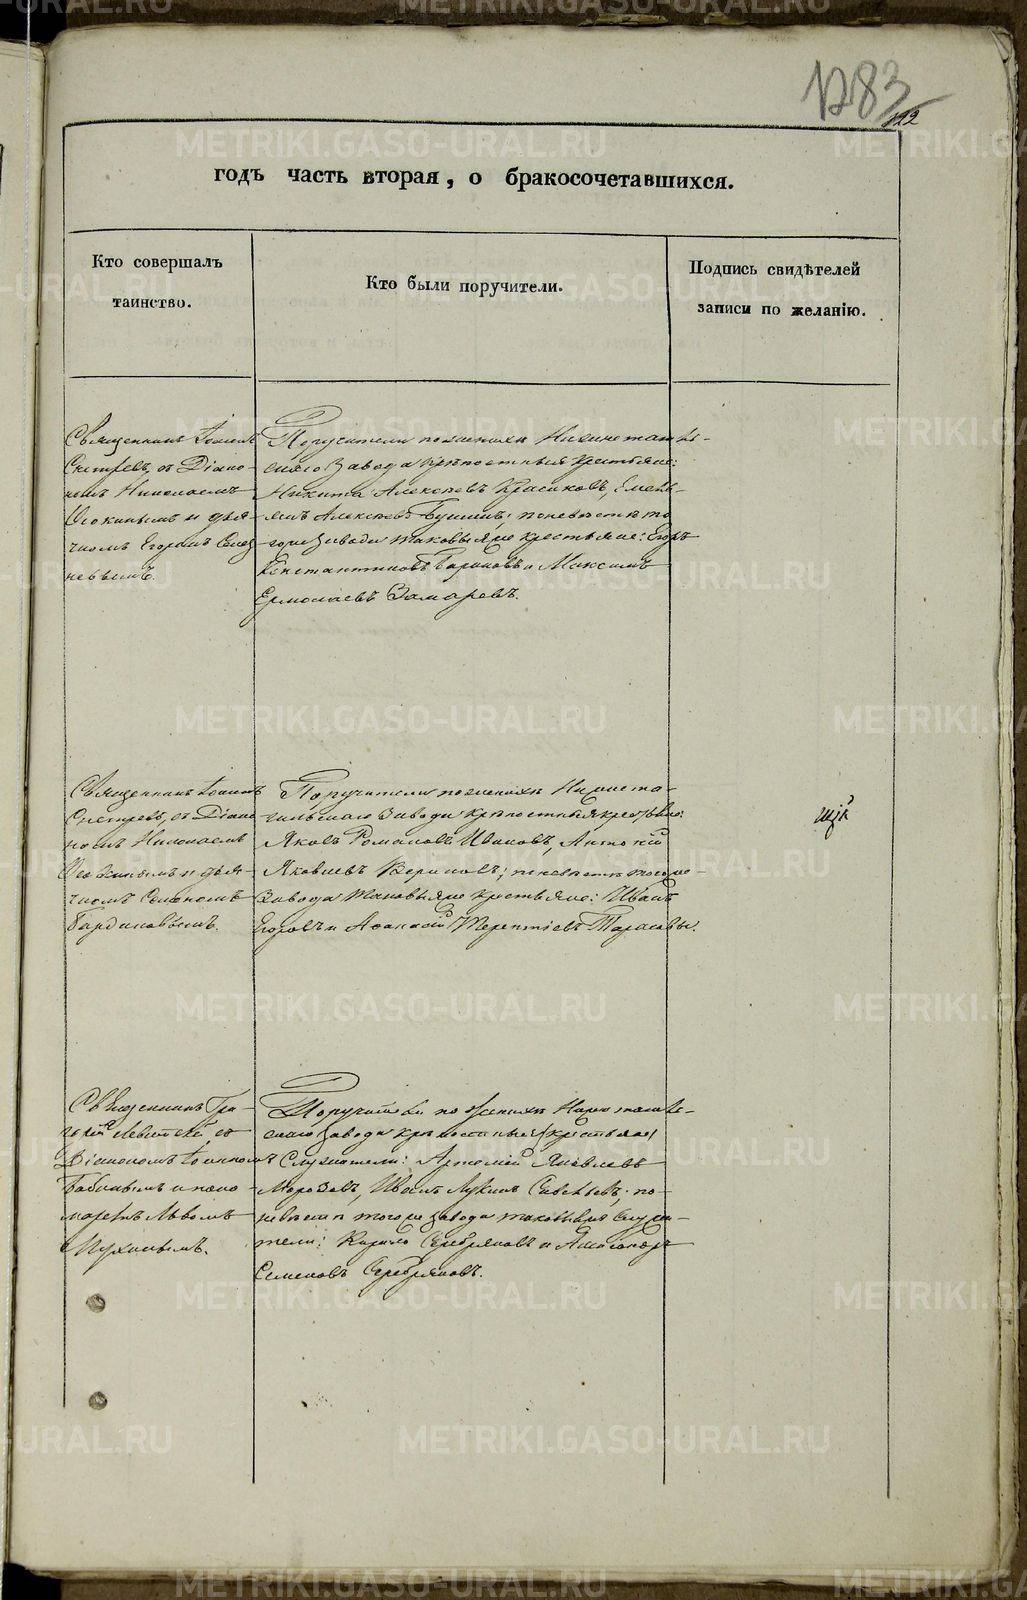 1283
122
годъ часть вторая, о бракосочетавшихся.
Кто совершалъ
таинство.
Кто были поручители.
Подпись свидѣтелей
записи по желанію.
Священникъ Іоаннъ
съ Діако-
номъ Николаемъ
Осокинымъ и дья-
чкомъ Егоромъ
Поручители по женихѣ Нижнетагиль-
скаго Завода крѣпостныя крестьяне:
Никита Алексѣевъ Красиковъ, Емель-
янъ Алексѣевъ по невѣстѣ то
гоже Завода таковыяже крестьяне: Егоръ
Константиновъ Бараковъ и Максимъ
Ермолаевъ Замаревъ.
Священникъ Іоаннъ
съ Діако
номъ Николаемъ
Осокинымъ и дья-
чкомъ Семеномъ
Поручители по женихѣ Нижнета-
гильскаго Завода крѣпостныя крестьяне:
Яковъ Романовъ Ивановъ, Антоній
Яковлевъ по невѣстѣ тогоже
Завода таковыяже крестьяне: Иванъ
Егоровъ и Аѳанасій Терентіевъ Тарасовы.
Священникъ Гри-
горій Левитскій, съ
Діакономъ Іоанномъ
Бабинымъ и поно
маремъ Львомъ
Мухинымъ.
Поручители по женихѣ Нижнетагиль-
скаго Завода крѣпостныя (крестьяне)
Служители: Артемій Яковлевъ
Морозевъ, Иванъ Лукинъ Савельевъ; по
невѣстѣ тогоже завода таковыяже служи-
тели: Кирило Серебряковъ и Александръ
Семеновъ Серебряковъ.
METRIKI.GASO-URAL.RU